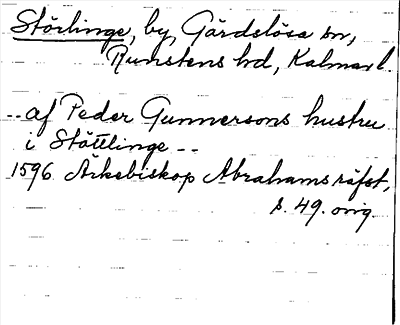 Störlinge, by, Gärdslösa sn,
Runstens hd, Kalmar l.
-- af Peder Gunnersons hustru
i Stöttlinge --
1596 Ärkebiskop Abrahams räfst,
s. 49. orig.